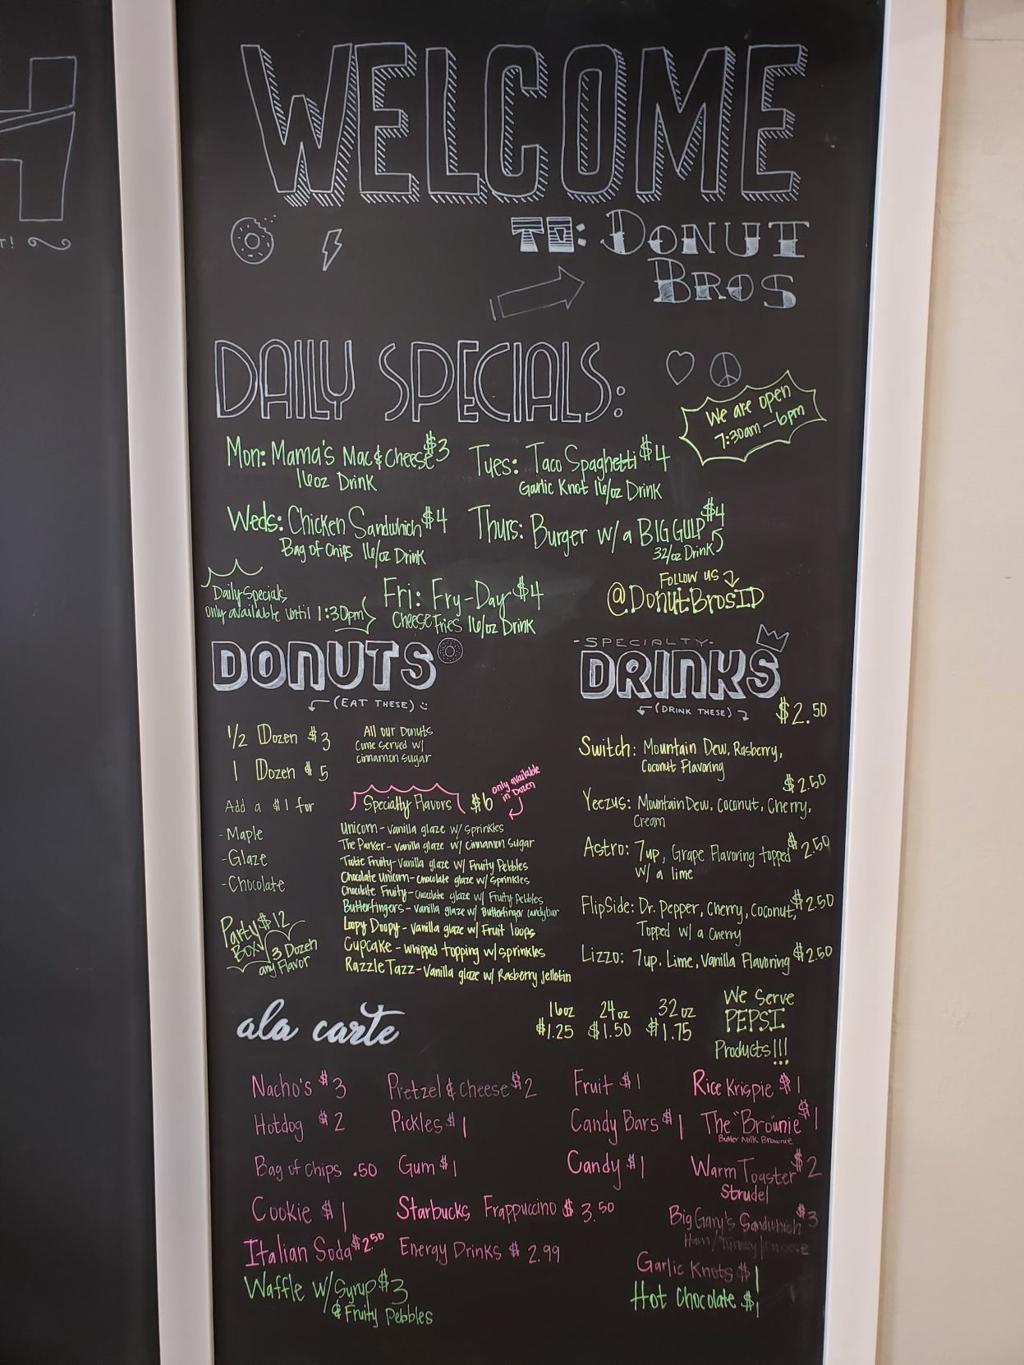 T!
WELCOME
TO: DONUT
BROS
DAILY SPECIALS:
We are open
7:30am - 6pm
Mon: Mama's Mac & Cheese $3
16oz Drink
Tues: Taco Spaghetti $4
Garlic Knot 16/oz Drink
Weds: Chicken Sandwhich $4
Bag of Chips 16/oz Drink
Thurs: Burger w/ a BIG GULP $4
32/oz Drink
Daily Specials
only available until 1:30pm
Fri: Fry-Day $4
Cheese Fries 16/oz Drink
Follow us
@DonutBrosID
DONUTS
(EAT THESE)
1/2 Dozen $3
1 Dozen $5
All our Donuts
Come served w/
cinnamon sugar
Add a $1 for
- Maple
- Glaze
- Chocolate
Party $12
Box
3 Dozen
any Flavor
Specialty Flavors $6
only available
in Dozen
Unicorn - Vanilla glaze w/ Sprinkles
The Parker - Vanilla glaze w/ Cinnamon Sugar
Tutie Fruity - Vanilla glaze w/ Fruity Pebbles
Chocolate Unicorn - Chocolate glaze w/ Sprinkles
Chocolate Fruity - Chocolate glaze w/ Fruity Pebbles
Butterfingers - Vanilla glaze w/ Butterfinger candybar
Loopy Doopy - Vanilla glaze w/ Fruit loops
Cupcake - whipped topping w/ sprinkles
Razzle Tazz - Vanilla glaze w/ Rasberry Jellotin
- SPECIALTY -
DRINKS
(DRINK THESE)
$2.50
Switch: Mountain Dew, Rasberry,
Coconut Flavoring
$2.50
Yeezus: Mountain Dew, Coconut, Cherry,
Cream
Astro: 7up, Grape Flavoring topped $2.50
w/ a lime
FlipSide: Dr. Pepper, Cherry, Coconut, $2.50
Topped w/ a Cherry
Lizzo: 7up, Lime, Vanilla Flavoring $2.50
16oz 24oz 32oz
$1.25 $1.50 $1.75
We Serve
PEPSI
Products!!!
ala carte
Nacho's $3
Pretzel & Cheese $2
Fruit $1
Rice Krispie $1
Hotdog $2
Pickles $1
Candy Bars $1
The "Brownie $1
Butter Milk Brownie
Bag of Chips .50
Gum $1
Candy $1
Warm Toaster $2
Strudel
Cookie $1
Starbucks Frappuccino $3.50
Big Gary's Sandwhich $3
Ham/Turkey/Cheese
Italian Soda $2.50
Energy Drinks $2.99
Garlic Knots $1
Waffle w/ Syrup $3
& Fruity Pebbles
Hot Chocolate $1